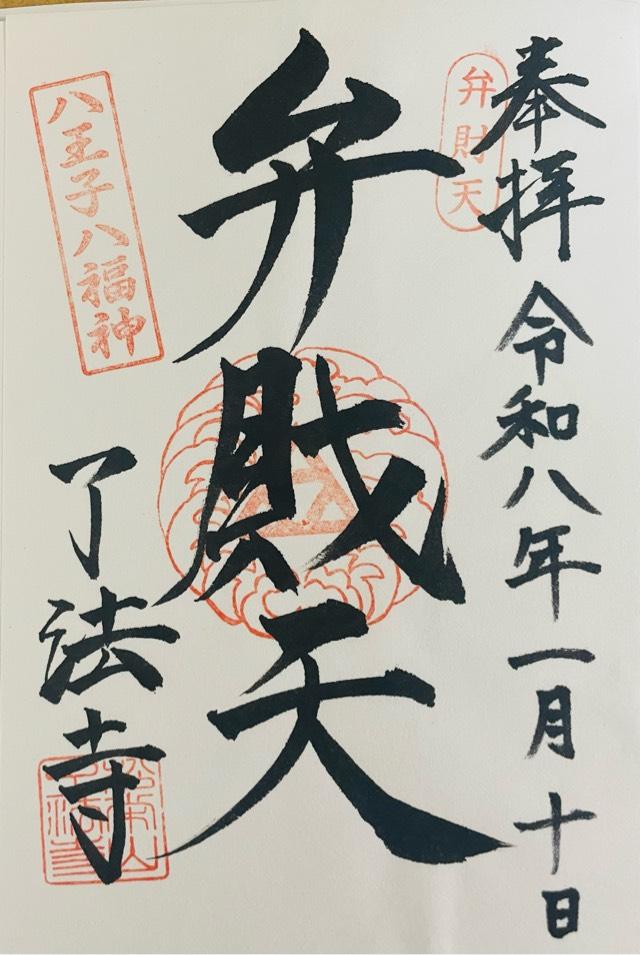 奉拝
令和八年一月十日
弁財天
弁財天
八王子八福神
了法寺